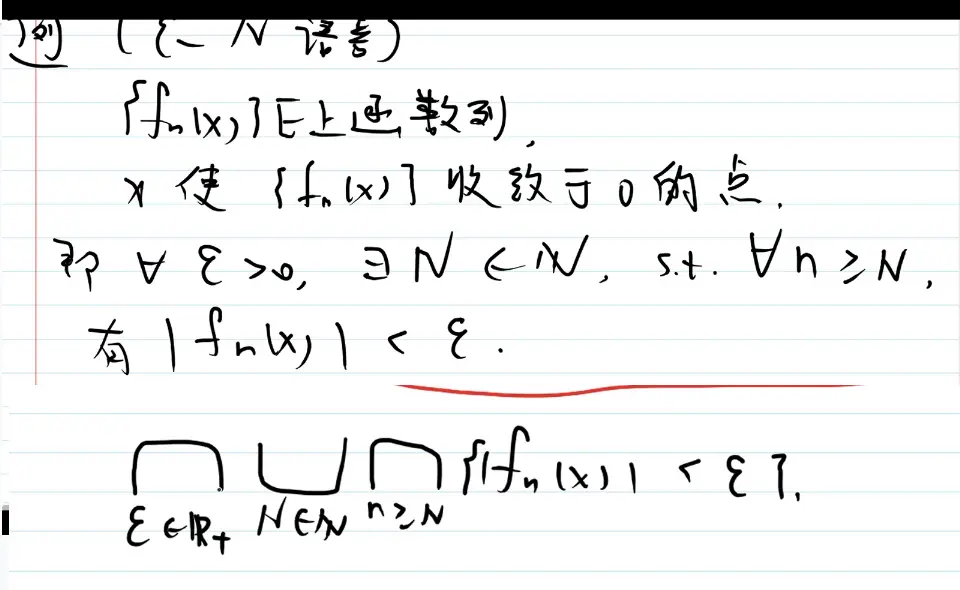 例 (ε-N 语言)
{fₙ(x)} E上函数列,
x 使 {fₙ(x)} 收敛于 0 的点.
即 ∀ ε>0, ∃ N ∈ ℕ, s.t. ∀ n ≥ N,
有 |fₙ(x)| < ε.
⋂_{ε∈ℝ₊} ⋃_{N∈ℕ} ⋂_{n≥N} {|fₙ(x)| < ε}.